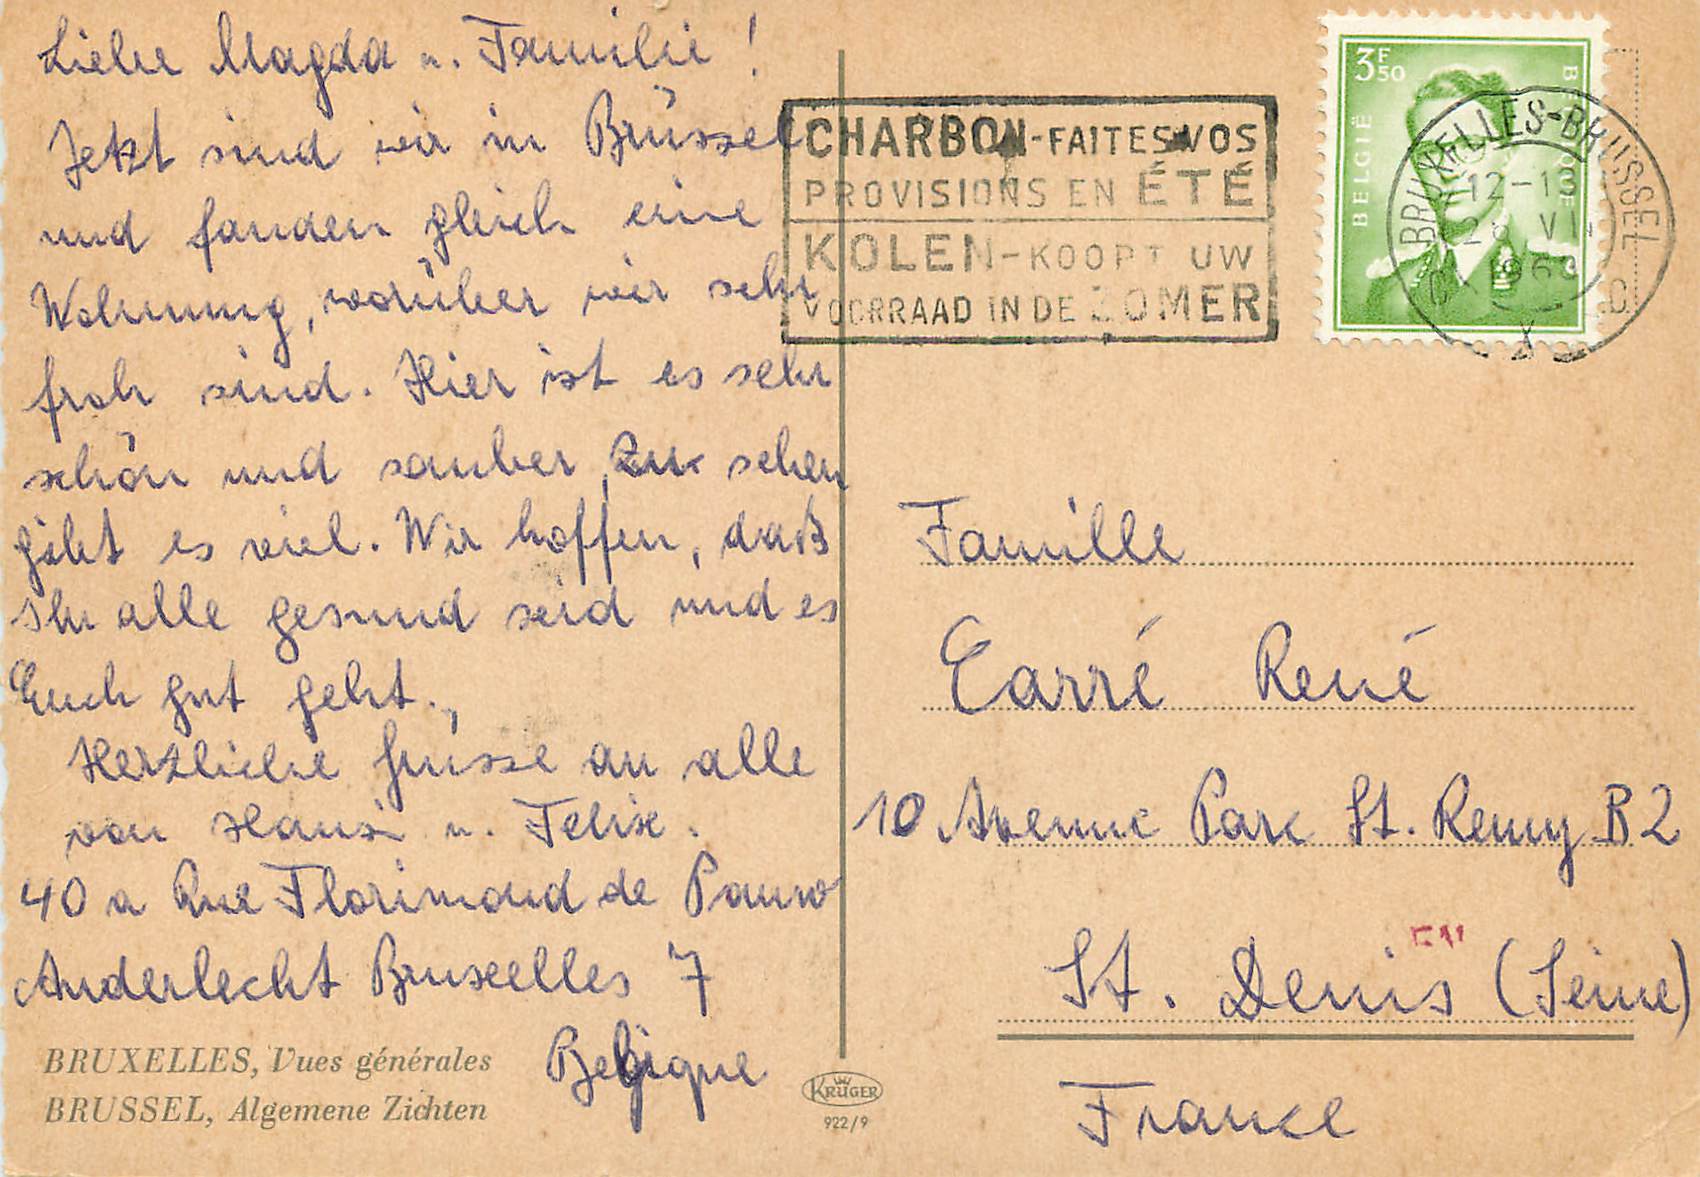 Liebe Magda u. Familie!
Jetzt sind wir in Brüssel
und fanden gleich eine
Wohnung, worüber wir sehr
froh sind. Hier ist es sehr
schön und sauber, zu sehen
gibt es viel. Wir hoffen, daß
Ihr alle gesund seid und es
Euch gut geht.
Herzliche Grüsse an alle
von Hansi u. Felix.
40 a Rue Florimond de Pauw
Anderlecht Bruxelles 7
Belgique
BRUXELLES, Vues générales
BRUSSEL, Algemene Zichten
KRÜGER
922/9
CHARBON-FAITES VOS
PROVISIONS EN ÉTÉ
KOLEN-KOOPT UW
VOORRAAD IN DE ZOMER
3F50
BELGIË
BRUXELLES-BRUSSEL
12-13
Famille
Carré René
10 Avenue Parc St. Remy B2
St. Denis (Seine)
France